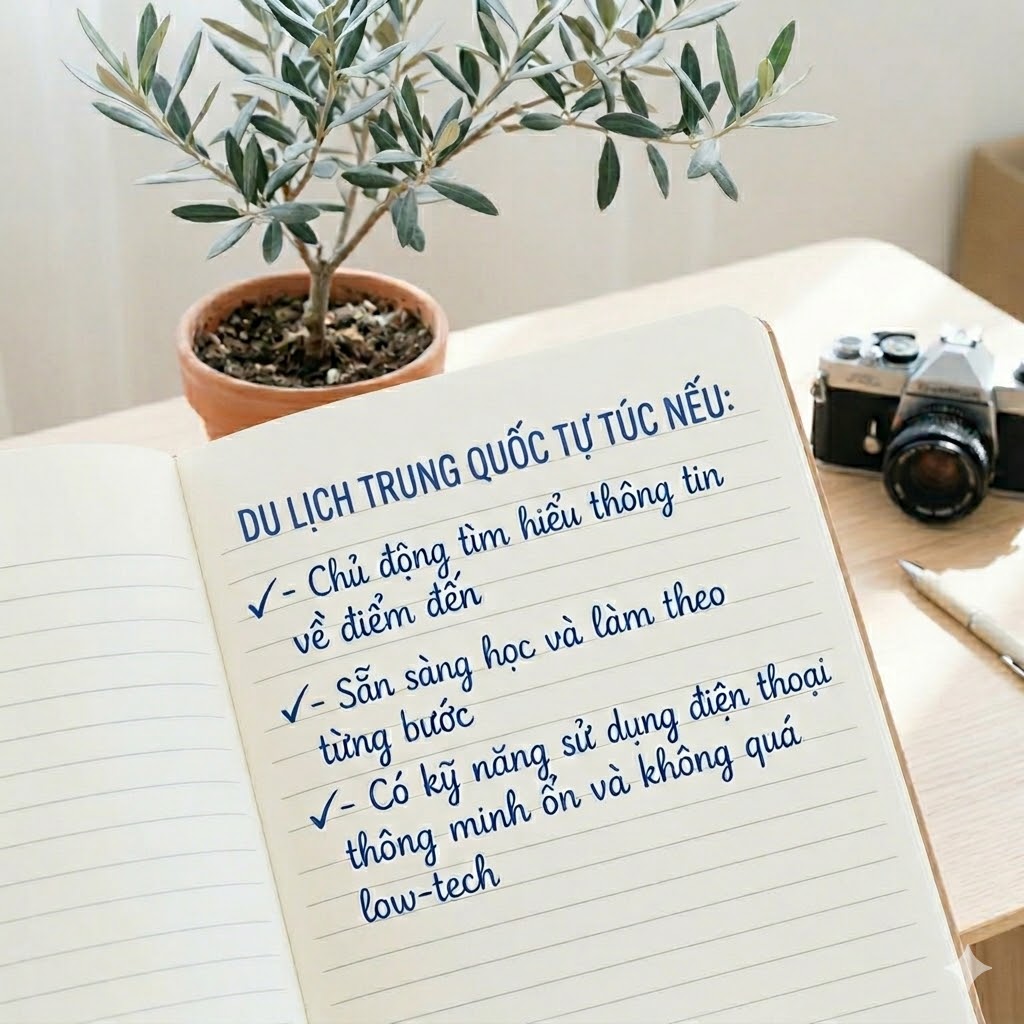 DU LỊCH TRUNG QUỐC TỰ TÚC NẾU:
✓- Chủ động tìm hiểu thông tin
về điểm đến
✓- Sẵn sàng học và làm theo
từng bước
✓- Có kỹ năng sử dụng điện thoại
thông minh ổn và không quá
low-tech